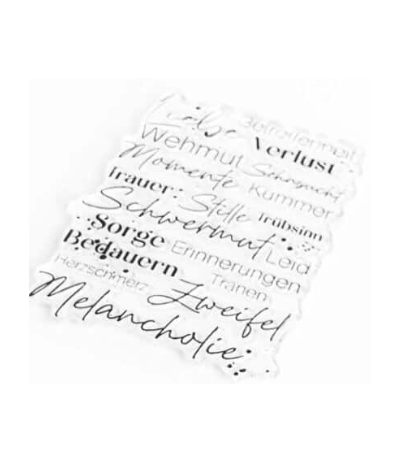 Liebe Betroffenheit
Wehmut Verlust
Momente Sehnsucht
Trauer Stille Kummer
Schwermut Trübsinn
Sorge Leid
Bedauern Erinnerungen
Herzschmerz Zweifel Tränen
Melancholie